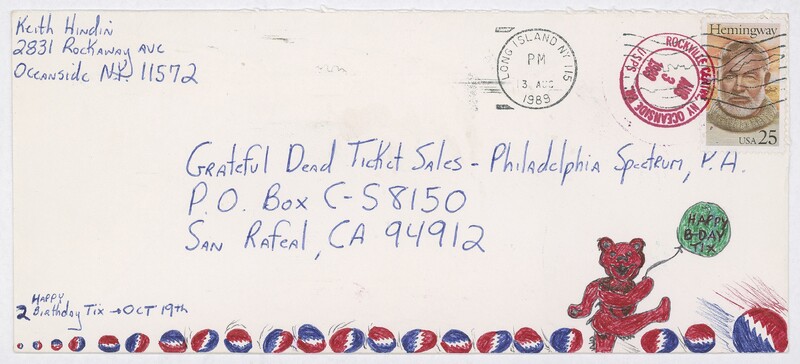 Keith Hindin
2831 Rockaway Ave
Oceanside N.Y. 11572
LONG ISLAND NY 115
PM
3 AUG
1989
ROCKVILLE CENTRE, NY OCEANSIDE BR.
USPS
AUG
3
1989
Hemingway
USA 25
Grateful Dead Ticket Sales - Philadelphia Spectrum, P.A.
P.O. Box C-S8150
San Rafeal, CA 94912
HAPPY
B-DAY
TIX
2 Happy Birthday Tix → Oct 19th